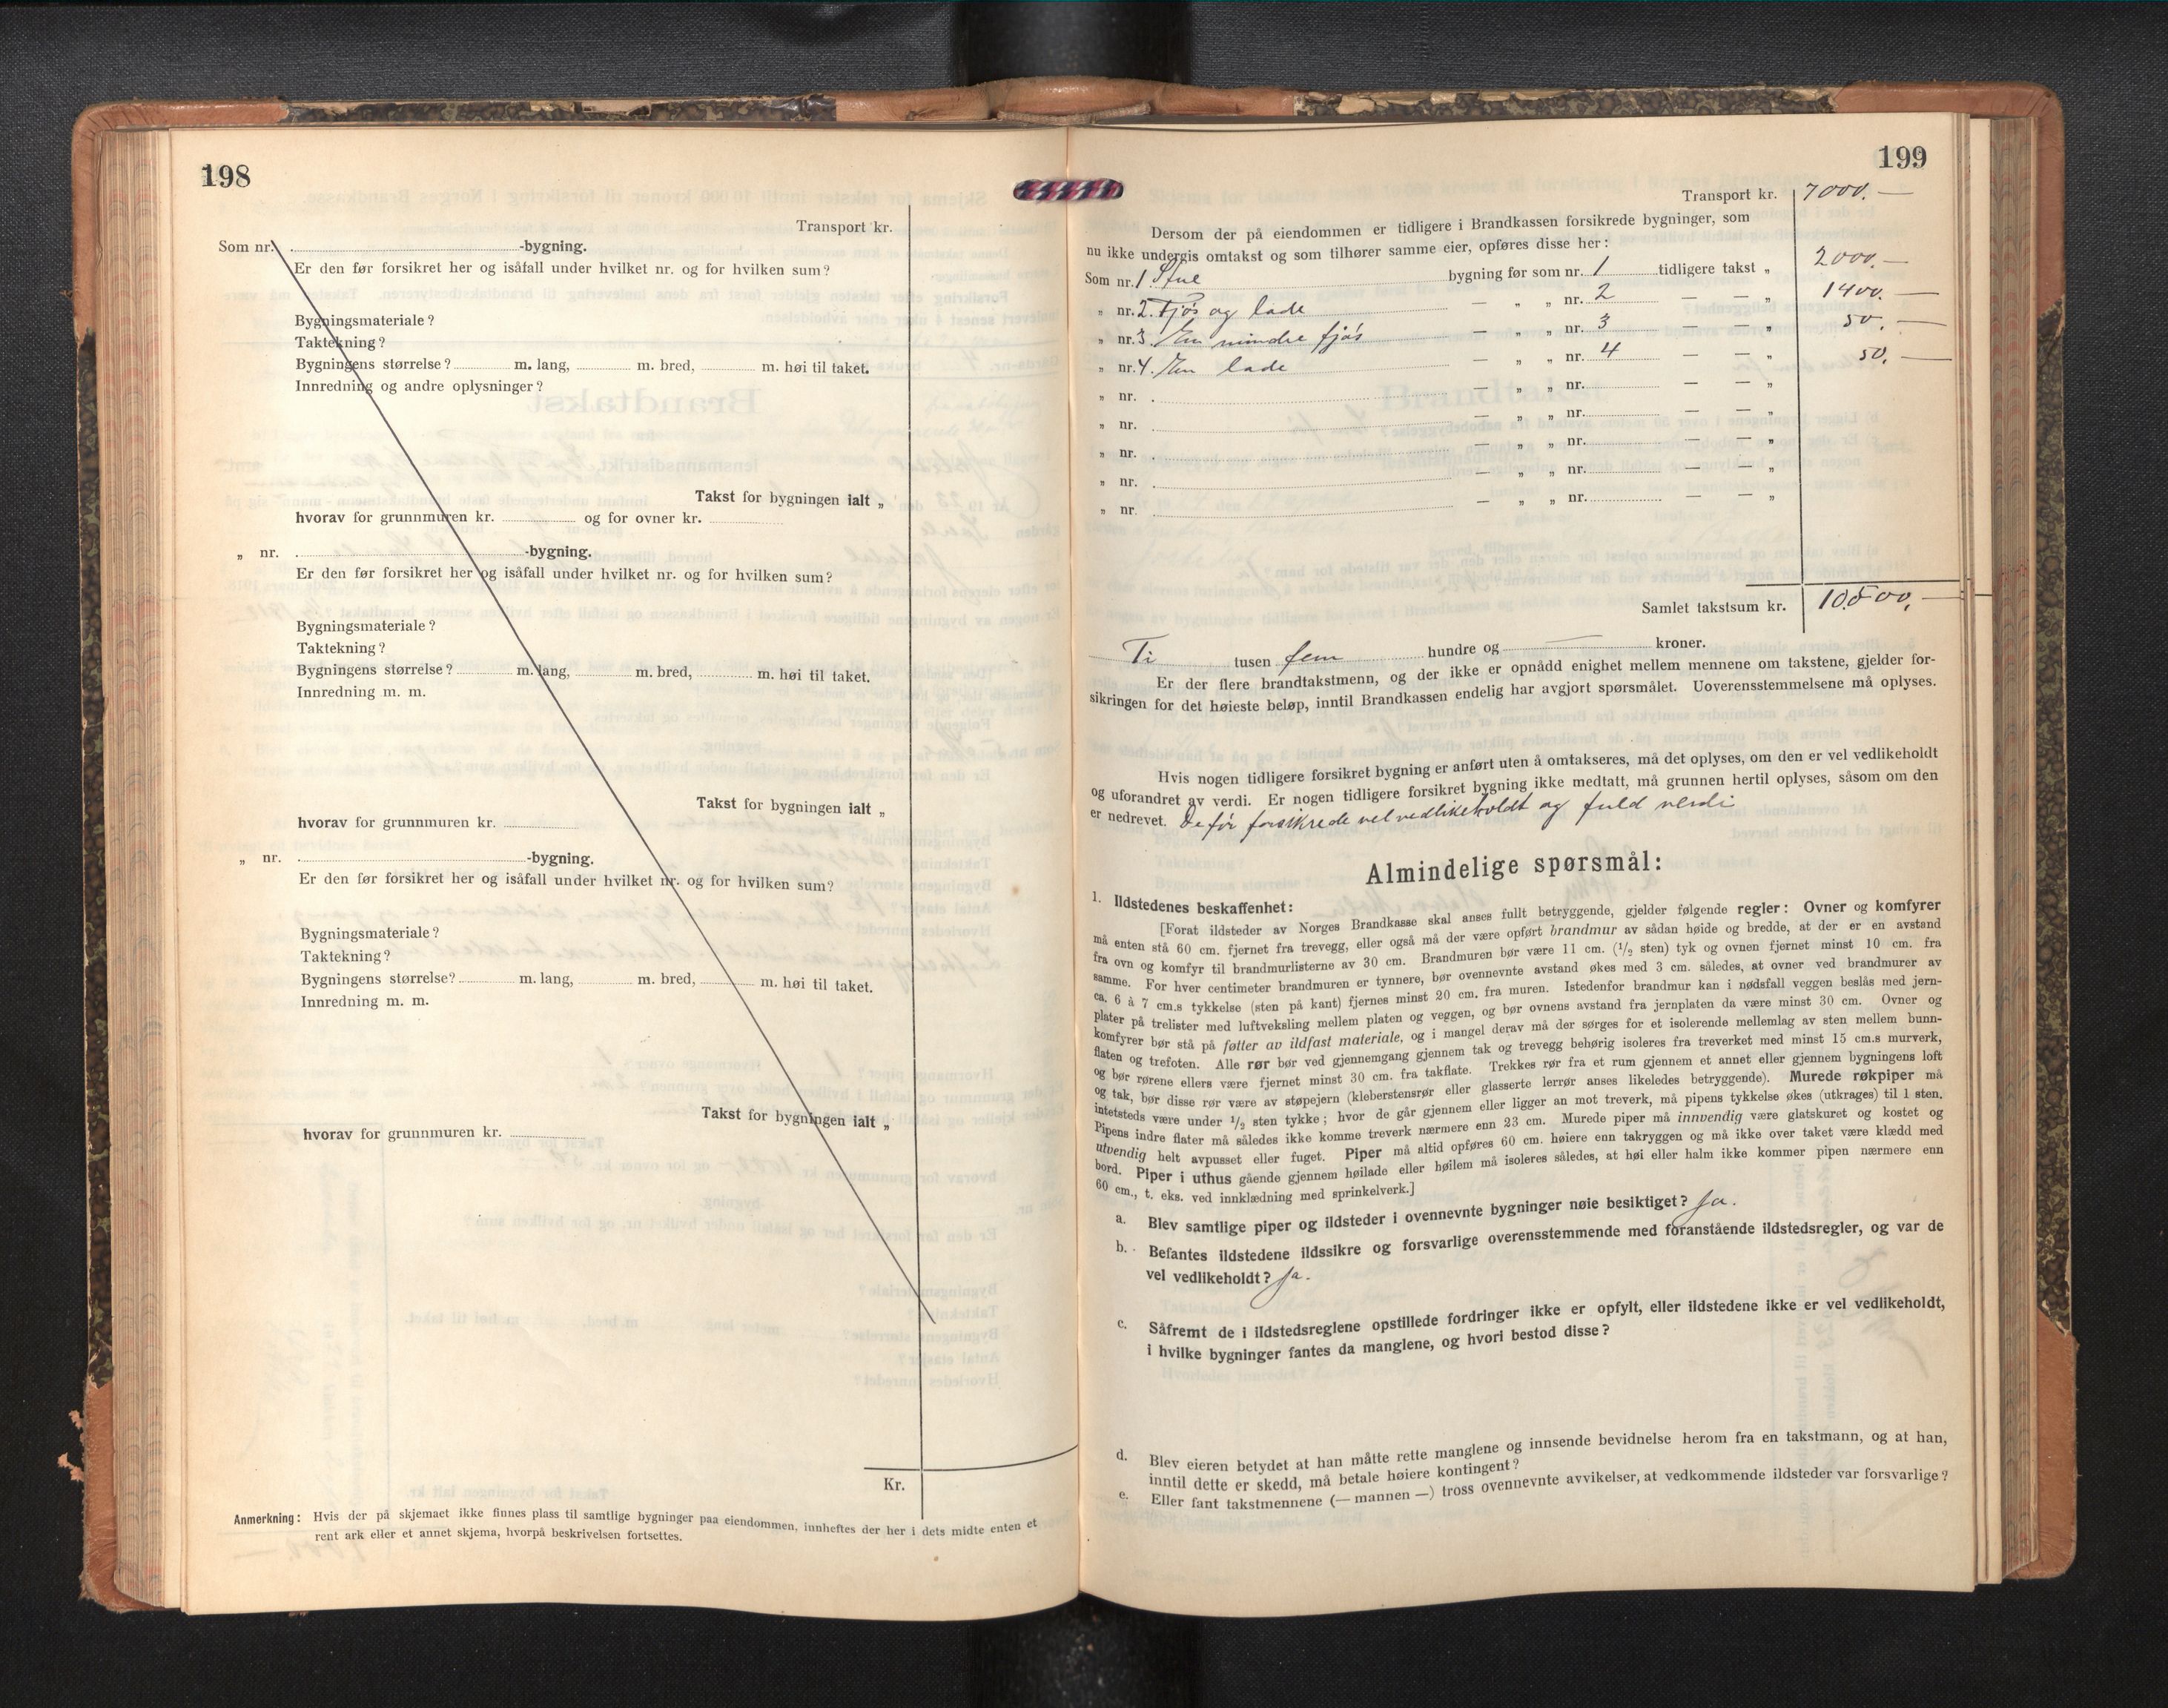 198
Transport kr.
Som nr. -bygning.
Er den før forsikret her og isåfall under hvilket nr. og for hvilken sum?
Bygningsmateriale?
Taktekning?
Bygningens størrelse? m. lang, m. bred, m. høi til taket.
Innredning og andre oplysninger?
Takst for bygningen ialt „
hvorav for grunnmuren kr. og for ovner kr.
„ nr. -bygning.
Er den før forsikret her og isåfall under hvilket nr. og for hvilken sum?
Bygningsmateriale?
Taktekning?
Bygningens størrelse? m. lang, m. bred, m. høi til taket.
Innredning m. m.
Takst for bygningen ialt „
hvorav for grunnmuren kr.
„ nr. -bygning.
Er den før forsikret her og isåfall under hvilket nr. og for hvilken sum?
Bygningsmateriale?
Taktekning?
Bygningens størrelse? m. lang, m. bred, m. høi til taket.
Innredning m. m.
Takst for bygningen ialt „
hvorav for grunnmuren kr.
Kr.
Anmerkning: Hvis der på skjemaet ikke finnes plass til samtlige bygninger paa eiendommen, innheftes der her i dets midte enten et
rent ark eller et annet skjema, hvorpå beskrivelsen fortsettes.
199
Transport kr. 7000.—
Dersom der på eiendommen er tidligere i Brandkassen forsikrede bygninger, som
nu ikke undergis omtakst og som tilhører samme eier, opføres disse her:
Som nr. 1. Stue bygning før som nr. 1 tidligere takst „ 2000.—
„ nr. 2. Fjøs og lade — „ „ nr. 2 — — „ 1400.—
„ nr. 3. En mindre fjøs — „ „ nr. 3 — — „ 50.—
„ nr. 4. En lade — „ „ nr. 4 — — „ 50.—
„ nr. . — „ „ nr. — — „
„ nr. — „ „ nr. — — „
„ nr. . — „ „ nr. — — „
„ nr. . — „ „ nr. — — „
„ nr. — „ „ nr. — — „
Samlet takstsum kr. 10500,—
Ti tusen fem hundre og — kroner.
Er der flere brandtakstmenn, og der ikke er opnådd enighet mellem mennene om takstene, gjelder for-
sikringen for det høieste beløp, inntil Brandkassen endelig har avgjort spørsmålet. Uoverensstemmelsene må oplyses.
Hvis nogen tidligere forsikret bygning er anført uten å omtakseres, må det oplyses, om den er vel vedlikeholdt
og uforandret av verdi. Er nogen tidligere forsikret bygning ikke medtatt, må grunnen hertil oplyses, såsom om den
er nedrevet. De før forsikrede vel vedlikeholdt og fuld verdi
Almindelige spørsmål:
1. Ildstedenes beskaffenhet:
[Forat ildsteder av Norges Brandkasse skal anses fullt betryggende, gjelder følgende regler: Ovner og komfyrer
må enten stå 60 cm. fjernet fra trevegg, eller også må der være opført brandmur av sådan høide og bredde, at der er en avstand
fra ovn og komfyr til brandmurlisterne av 30 cm. Brandmuren bør være 11 cm. (1/2 sten) tyk og ovnen fjernet minst 10 cm. fra
samme. For hver centimeter brandmuren er tynnere, bør ovennevnte avstand økes med 3 cm. således, at ovner ved brandmurer av
ca. 6 à 7 cm.s tykkelse (sten på kant) fjernes minst 20 cm. fra muren. Istedenfor brandmur kan i nødsfall veggen beslås med jern-
plater på trelister med luftveksling mellem platen og veggen, og bør ovnens avstand fra jernplaten da være minst 30 cm. Ovner og
komfyrer bør stå på føtter av ildfast materiale, og i mangel derav må der sørges for et isolerende mellemlag av sten mellem bunn-
flaten og trefoten. Alle rør bør ved gjennemgang gjennem tak og trevegg behørig isoleres fra treverket med minst 15 cm.s murverk,
og bør rørene ellers være fjernet minst 30 cm. fra takflate. Trekkes rør fra et rum gjennem et annet eller gjennem bygningens loft
og tak, bør disse rør være av støpejern (kleberstensrør eller glasserte lerrør anses likeledes betryggende). Murede røkpiper må
intetsteds være under 1/2 sten tykke; hvor de går gjennem eller ligger an mot treverk, må pipens tykkelse økes (utkrages) til 1 sten.
Pipens indre flater må således ikke komme treverk nærmere enn 23 cm. Murede piper må innvendig være glatskuret og kostet og
utvendig helt avpusset eller fuget. Piper må altid opføres 60 cm. høiere enn takryggen og må ikke over taket være klædd med
bord. Piper i uthus gående gjennem høilade eller høilem må isoleres således, at høi eller halm ikke kommer pipen nærmere enn
60 cm., t. eks. ved innklædning med sprinkelverk.]
a. Blev samtlige piper og ildsteder i ovennevnte bygninger nøie besiktiget? Ja.
b. Befantes ildstedene ildssikre og forsvarlige overensstemmende med foranstående ildstedsregler, og var de
vel vedlikeholdt? Ja.
c. Såfremt de i ildstedsreglene opstillede fordringer ikke er opfylt, eller ildstedene ikke er vel vedlikeholdt,
i hvilke bygninger fantes da manglene, og hvori bestod disse?
d. Blev eieren betydet at han måtte rette manglene og innsende bevidnelse herom fra en takstmann, og at han,
inntil dette er skedd, må betale høiere kontingent?
e. Eller fant takstmennene (— mannen —) tross ovennevnte avvikelser, at vedkommende ildsteder var forsvarlige?